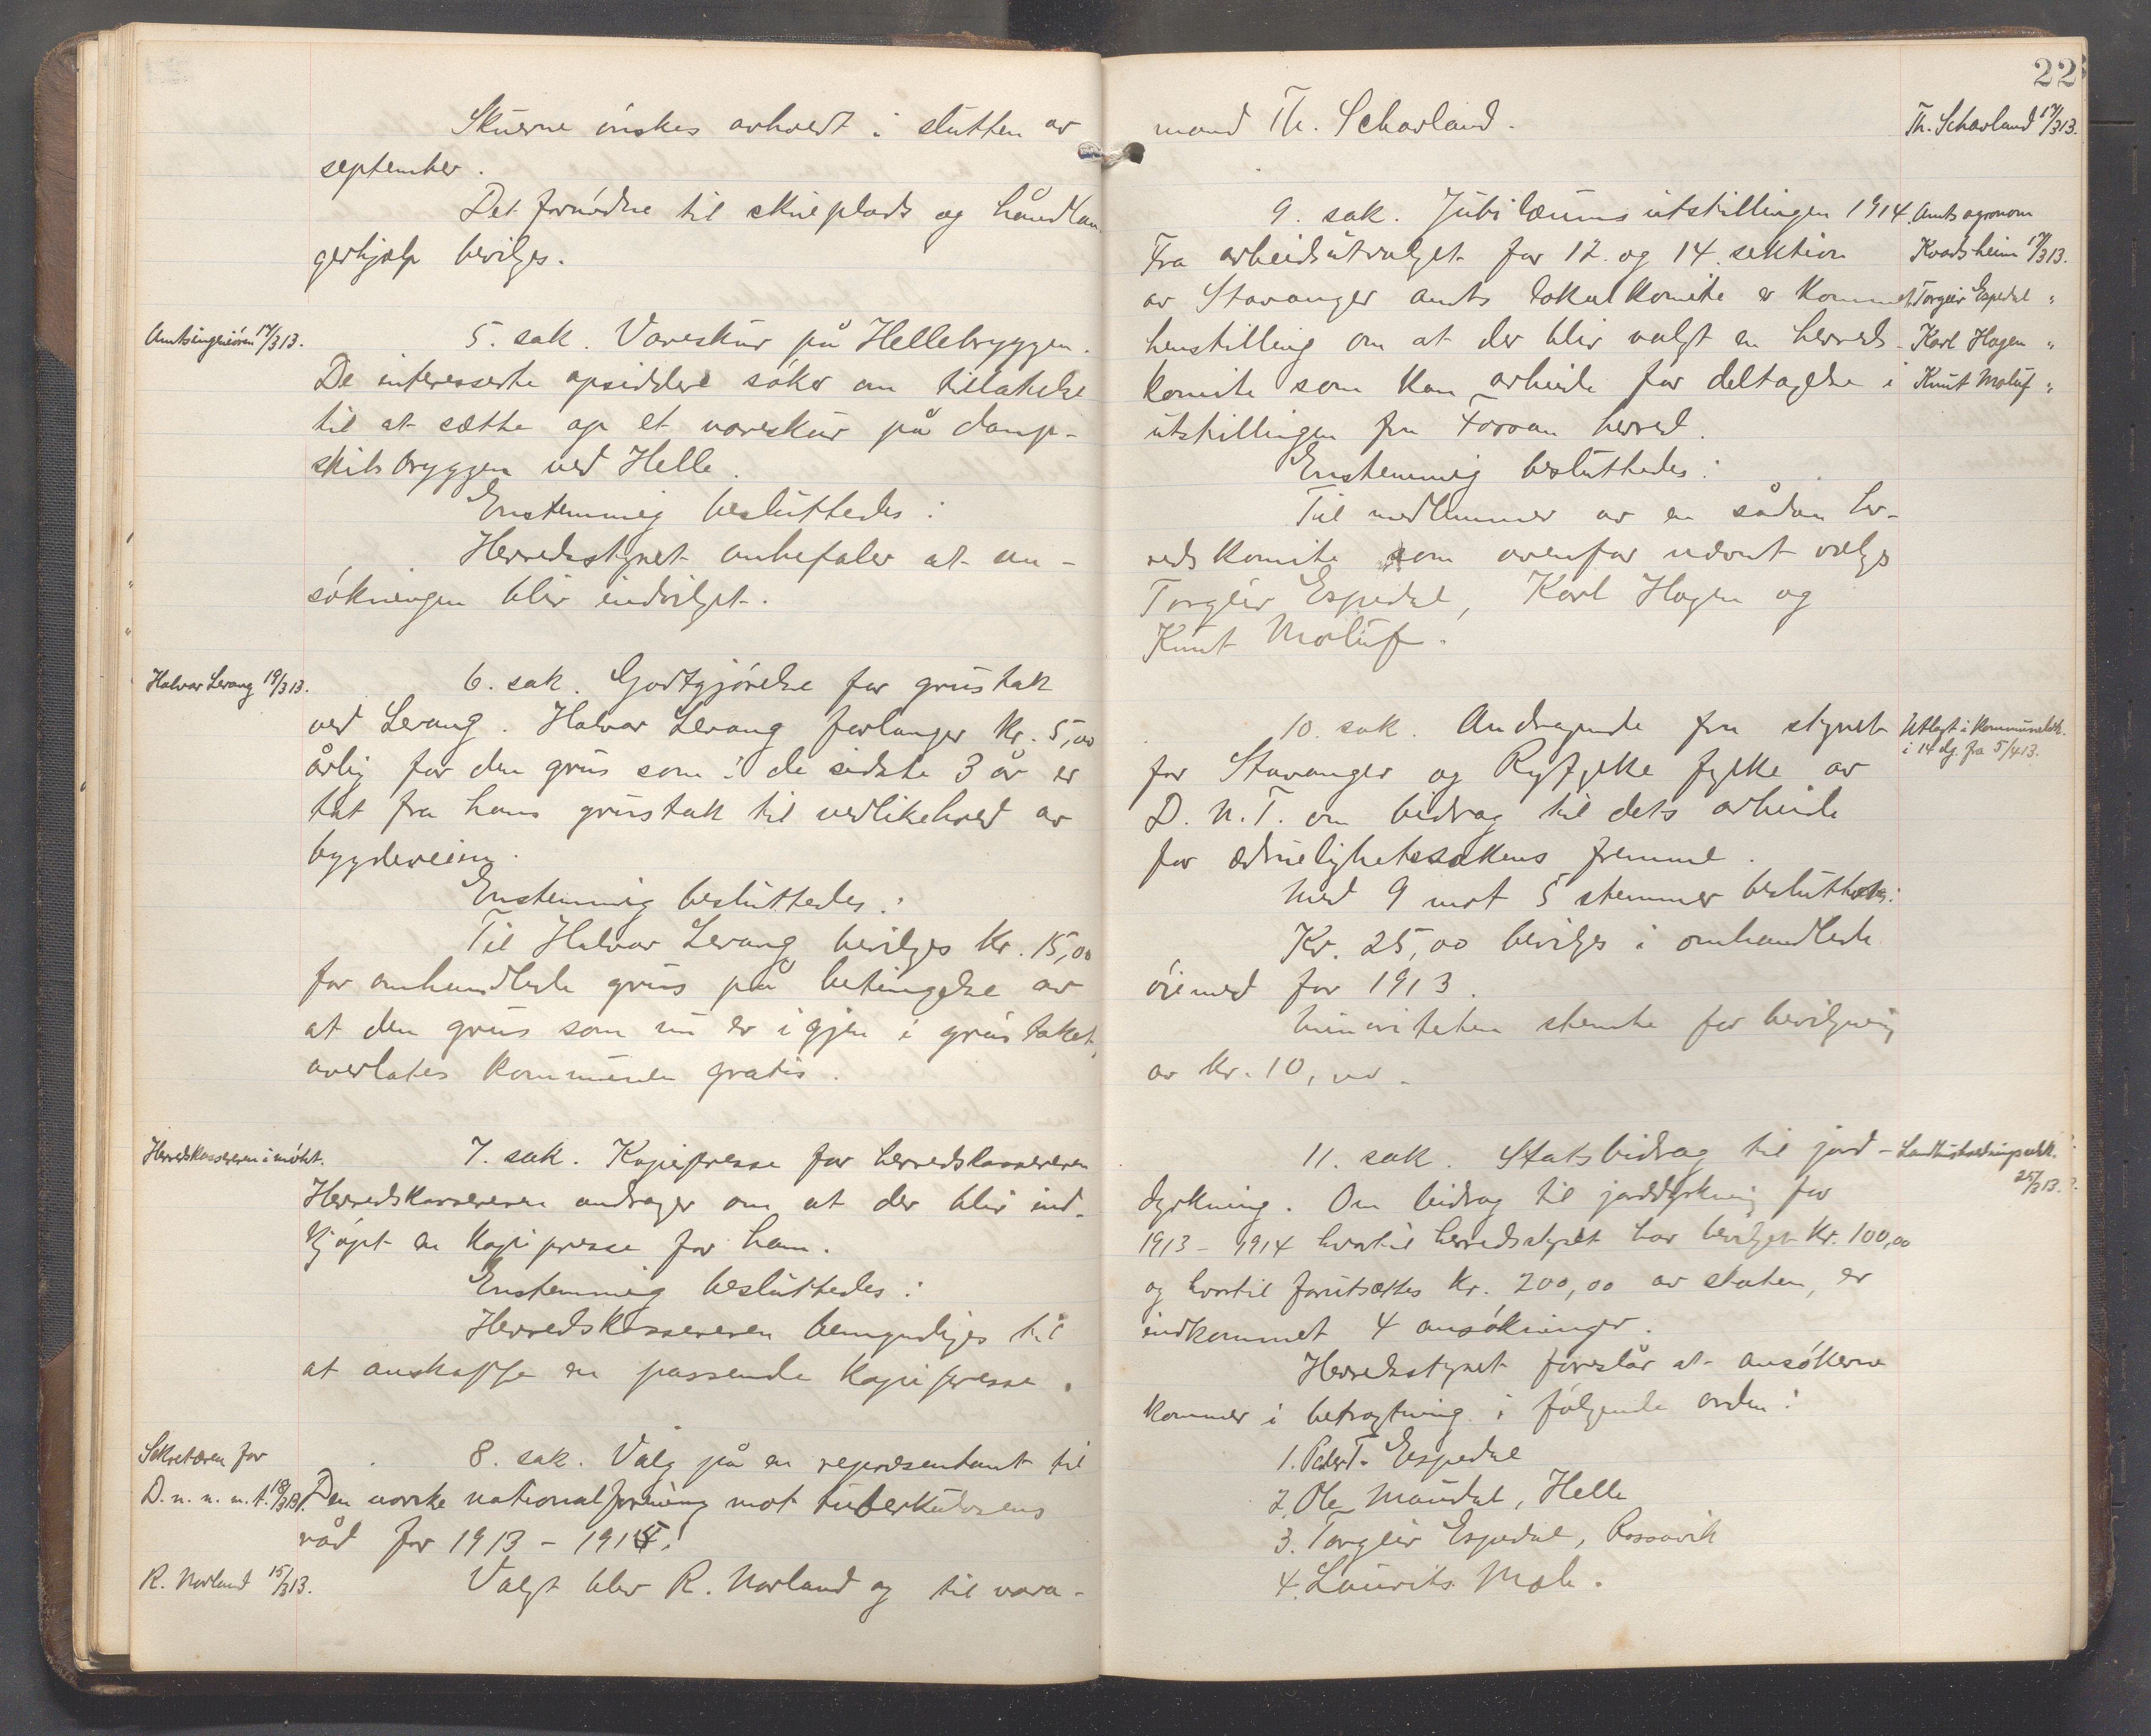 Skuerne ønskes avholdt i slutten av
september.
Det fornødne til skueplads og håndlan-
gerhjælp bevilges.
Amtsingeniøren 17/3 13.
5. sak. Vareskur på Hellebryggen.
De interesserte opsiddere søker om tillatelse
til at sætte op et vareskur på damp-
skibsbryggen ved Helle.
Enstemmig besluttedes:
Herredsstyret anbefaler at an-
søkningen blir indvilget.
Halvar Levang 19/3 13.
6. sak. Godtgjørelse for grustak
ved Levang. Halvar Levang forlanger kr. 5,00
årlig for den grus som i de sidste 3 år er
tat fra hans grustak til vedlikehold av
bygdeveien.
Enstemmig besluttedes:
Til Halvar Levang bevilges kr. 15,00
for omhandlede grus på betingelse av
at den grus som nu er igjen i grustaket,
overlates kommunen gratis.
Herredskassereren i møtet.
7. sak. Kopipresse for herredskassereren
Herredskassereren andrager om at der blir ind-
kjøpt en kopipresse for ham.
Enstemmig besluttedes:
Herredskassereren bemyndiges til
at anskaffe en passende kopipresse.
Sekretæren for
D. n. n. m. t. 18/3 13.
8. sak. Valg på en repræsentant til
Den norske nationalforening mot tuberkulosens
råd for 1913 - 1915.
R. Norland 15/3 13.
Valgt blev R. Norland og til vara-
22
mand Th. Scharland.
Th. Scharland 17/3 13.
9. sak. Jubilæumsutstillingen 1914.
Fra arbeidsutvalget for 12. og 14. sektion
av Stavanger amts lokalkomite er kommet
henstilling om at der blir valgt en herreds-
komite som kan arbeide for deltagelse i
utstillingen fra Forsan herred.
Amtsagronom
Kvadsheim 17/3 13.
Torgeir Espedal "
Karl Hagen "
Knut Moluf "
Enstemmig besluttedes:
Til medlemmer av en sådan her-
redskomite som ovenfor nævnt vælges
Torgeir Espedal, Karl Hagen og
Knut Moluf.
10. sak. Andragende fra styret
for Stavanger og Ryfylke fylke av
D. N. T. om bidrag til dets arbeide
for ædruelighetssakens fremme.
Utlagt i kommunelok.
i 14 dg. fra 5/4 13.
Med 9 mot 5 stemmer besluttedes:
Kr. 25,00 bevilges i omhandlede
øiemed for 1913.
Minoriteten stemte for bevilgning
av kr. 10,00.
11. sak. Statsbidrag til jord-
dyrkning. Om bidrag til jorddyrkning for
1913 - 1914 hvortil herredsstyret har bevilget kr. 100,00
og hvortil forutsættes kr. 200,00 av staten, er
indkommet 4 ansøkninger.
Landhusholdningsselsk.
25/3 13.
Herredsstyret foreslår at ansøkerne
kommer i betragtning i følgende orden:
1. Peder T. Espedal
2. Ole Maudal, Helle
3. Torgeir Espedal, Rossavik
4. Laurits Mæle.